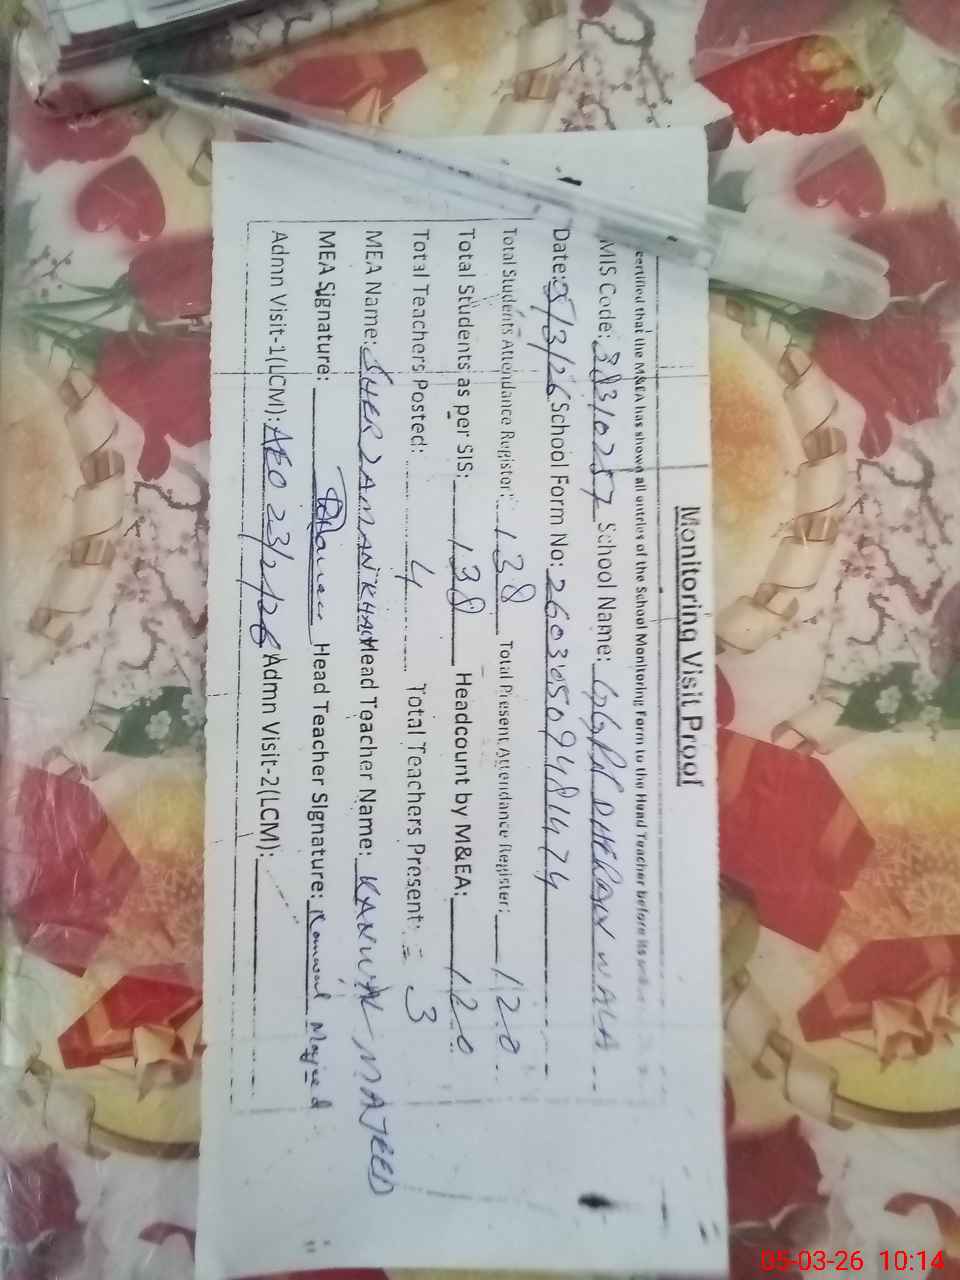 Monitoring Visit Proof
certified that the M&EA has shown all entries of the School Monitoring Form to the Head Teacher before its
MIS Code: 38310257 School Name: GGPS DHERAN WALA
Date: 5/3/26 School Form No: 26030509481474
Total Students Attendance Register: 138 Total Present Attendance Register: 120
Total Students as per SIS: 138 Headcount by M&EA: 120
Total Teachers Posted: 4 Total Teachers Present: = 3
MEA Name: SHER ZAMAN KHAN Head Teacher Name: KANWAL MAJEED
MEA Signature: Head Teacher Signature: Kanwal Majeed
Admn Visit-1(LCM): AEO 23/2/26 Admn Visit-2(LCM):
05-03-26 10:14